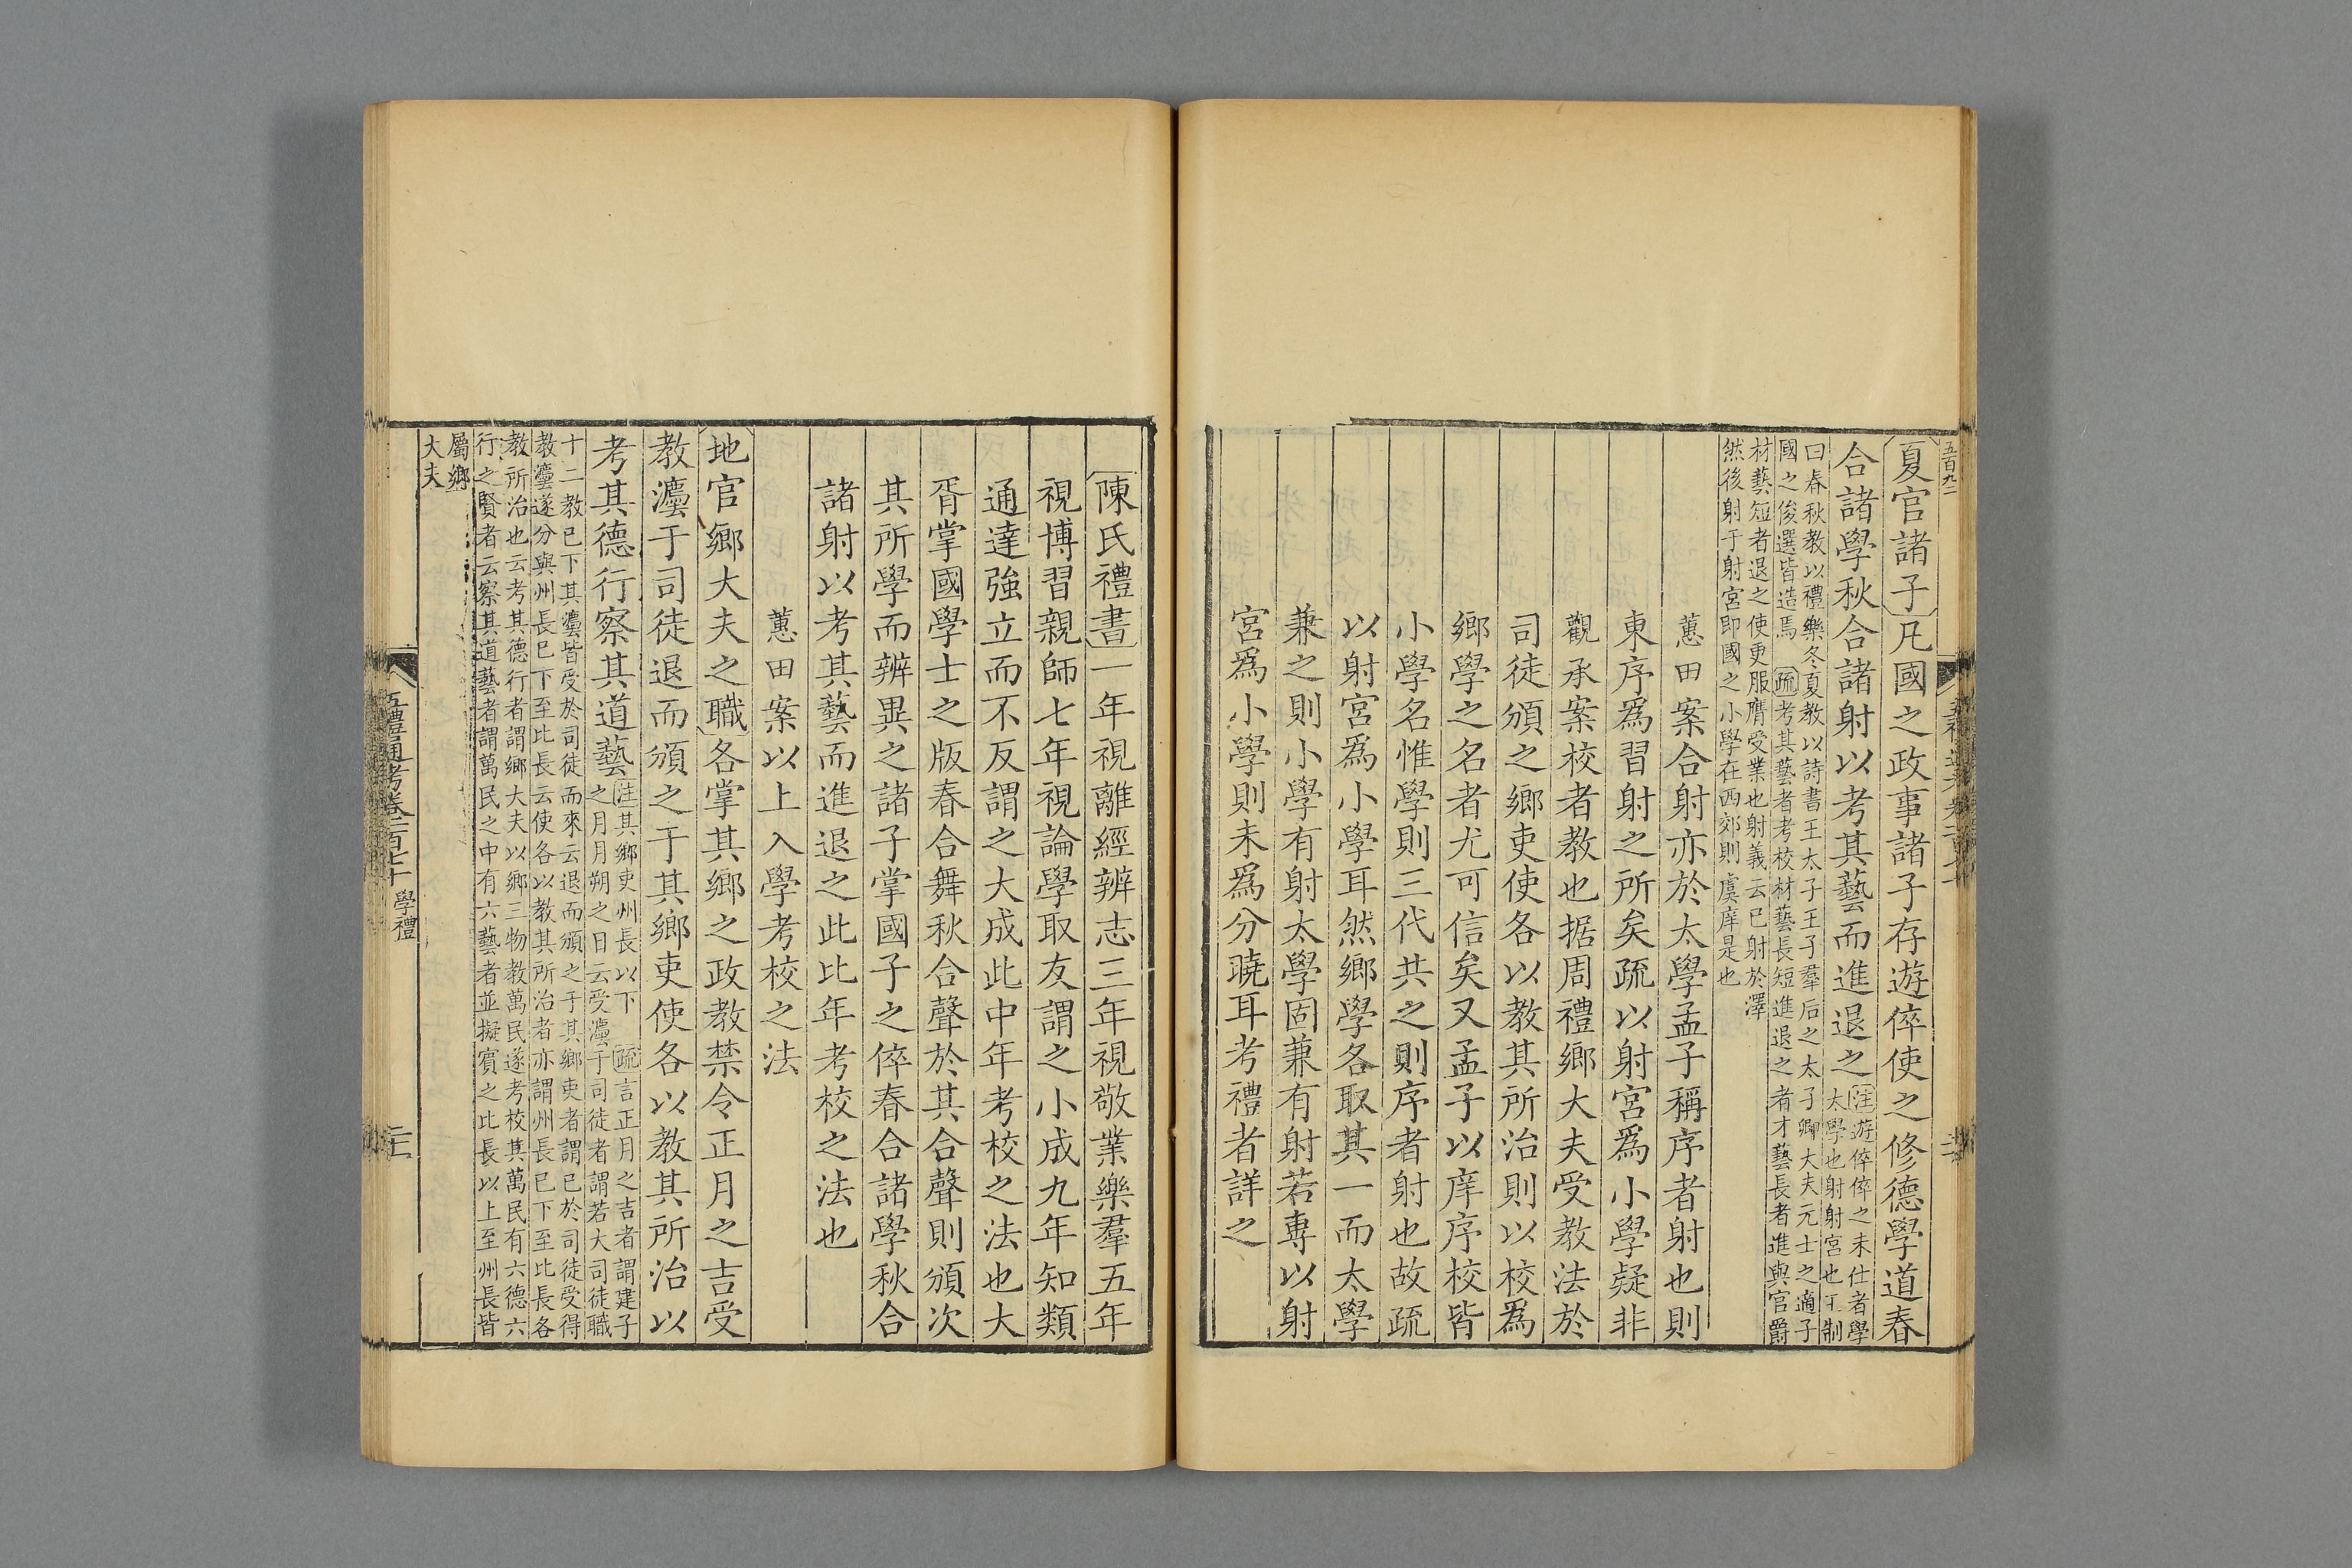 五百九二
夏官諸子凡國之政事諸子存遊倅使之修德學道春
合諸學秋合諸射以考其藝而進退之
注遊倅倅之未仕者學
太學也射射宮也王制
曰春秋教以禮樂冬夏教以詩書王太子王子羣后之太子卿大夫元士之適子
國之俊選皆造焉 疏考其藝者考校材藝長短進退之者才藝長者進與官爵
材藝短者退之使更服膺受業也射義云已射於澤
然後射于射宮即國之小學在西郊則虞庠是也
蕙田案合射亦於太學孟子稱序者射也則
東序爲習射之所矣疏以射宮爲小學疑非
觀承案校者教也据周禮鄉大夫受教法於
司徒頒之鄉吏使各以教其所治則以校爲
鄉學之名者尤可信矣又孟子以庠序校皆
小學名惟學則三代共之則序者射也故疏
以射宮爲小學耳然鄉學各取其一而太學
兼之則小學有射太學固兼有射若專以射
宮爲小學則未爲分曉耳考禮者詳之
陳氏禮書一年視離經辨志三年視敬業樂羣五年
視博習親師七年視論學取友謂之小成九年知類
通達強立而不反謂之大成此中年考校之法也大
胥掌國學士之版春合舞秋合聲於其合聲則頒次
其所學而辨異之諸子掌國子之倅春合諸學秋合
諸射以考其藝而進退之此比年考校之法也
蕙田案以上入學考校之法
地官鄉大夫之職各掌其鄉之政教禁令正月之吉受
教灋于司徒退而頒之于其鄉吏使各以教其所治以
考其德行察其道藝
注其鄉吏州長以下 疏言正月之吉者謂建子
之月月朔之日云受灋于司徒者謂若大司徒職
十二教已下其灋皆受於司徒而來云退而頒之于其鄉吏者謂已於司徒受得
教灋遂分與州長已下至比長云使各以教其所治者亦謂州長已下至比長各
教所治也云考其德行者謂鄉大夫以鄉三物教萬民遂考校其萬民有六德六
行之賢者云察其道藝者謂萬民之中有六藝者並擬賓之比長以上至州長皆
屬鄉
大夫
五禮通考卷一百七十 學禮
二十二